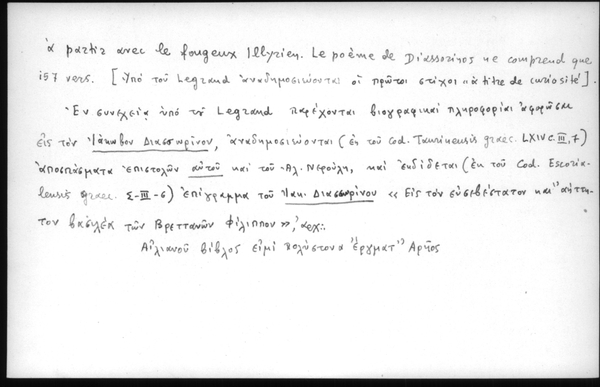 à partir avec le fougeux Illyrien. Le poème de Diassorinos ne comprend que
157 vers. [Ὑπὸ τοῦ Legrand ἀναδημοσιεύονται οἱ πρῶτοι στίχοι «à titre de curiosité»].
Ἐν συνεχείᾳ ὑπὸ τοῦ Legrand παρέχονται βιογραφικαὶ πληροφορίαι ἀφορῶσαι
εἰς τὸν Ἰάκωβον Διασσωρῖνον, ἀναδημοσιεύονται (ἐκ τοῦ Cod. Taurinensis graec. LXIV c. III, 7)
ἀποσπάσματα ἐπιστολῶν αὐτοῦ καὶ τοῦ Ἀλ. Νερούλη, καὶ ἐκδίδεται (ἐκ τοῦ Cod. Escoria-
lensis graec. Σ-III-6) ἐπίγραμμα τοῦ Ἰακ. Διασσωρίνου «Εἰς τὸν εὐσεβέστατον καὶ ἀήττη-
τον βασιλέα τῶν Βρεττανῶν Φίλιππον», ἀρχ.:
Αἰλιανοῦ βίβλος εἰμὶ πολύστονα ἔργματ' Ἄρηος